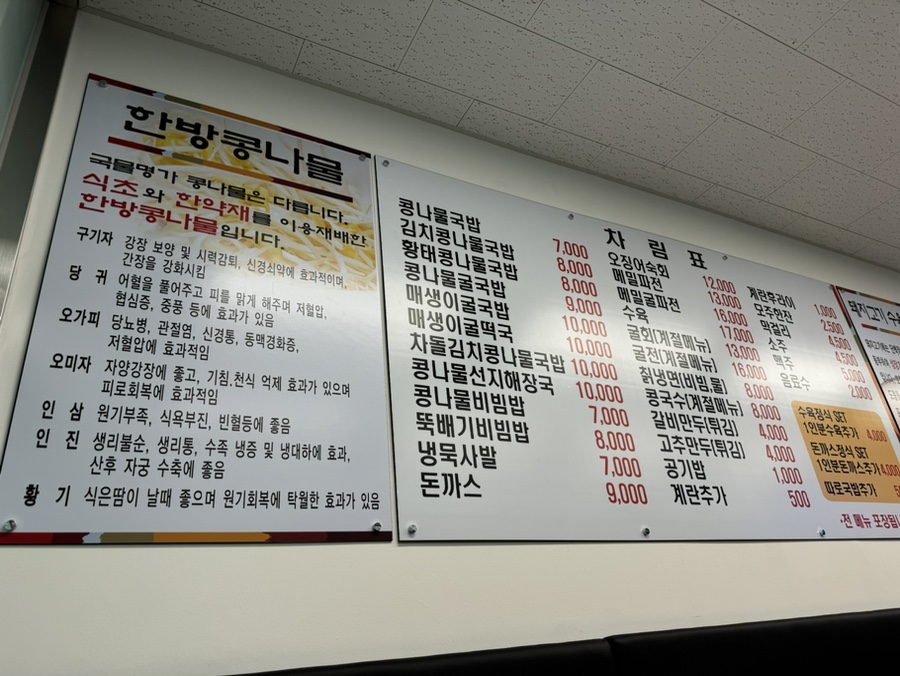 한방콩나물
국물명가 콩나물은 다릅니다.
식초와 한약재를 이용재배한
한방콩나물입니다.
구기자 강장 보양 및 시력감퇴, 신경쇠약에 효과적이며,
간장을 강화시킴
당 귀 어혈을 풀어주고 피를 맑게 해주며 저혈압,
협심증, 중풍 등에 효과가 있음
오가피 당뇨병, 관절염, 신경통, 동맥경화증,
저혈압에 효과적임
오미자 자양강장에 좋고, 기침.천식 억제 효과가 있으며
피로회복에 효과적임
인 삼 원기부족, 식욕부진, 빈혈등에 좋음
인 진 생리불순, 생리통, 수족 냉증 및 냉대하에 효과,
산후 자궁 수축에 좋음
황 기 식은땀이 날때 좋으며 원기회복에 탁월한 효과가 있음
차 림 표
콩나물국밥 7,000
김치콩나물국밥 8,000
황태콩나물국밥 8,000
콩나물굴국밥 9,000
매생이굴국밥 10,000
매생이굴떡국 10,000
차돌김치콩나물국밥 10,000
콩나물선지해장국 10,000
콩나물비빔밥 7,000
뚝배기비빔밥 8,000
냉묵사발 7,000
돈까스 9,000
오징어숙회 12,000
메밀파전 13,000
메밀굴파전 16,000
수육 17,000
굴회(계절메뉴) 13,000
굴전(계절메뉴) 16,000
칡냉면(비빔,물) 8,000
콩국수(계절메뉴) 8,000
갈비만두(튀김) 4,000
고추만두(튀김) 4,000
공기밥 1,000
계란추가 500
계란후라이 1,000
모주한잔 2,500
막걸리 4,500
소주 4,500
맥주 5,000
음료수 2,000
수육정식 SET
1인분수육추가 4,000
돈까스정식 SET
1인분돈까스추가 4,000
따로국밥추가
·전 메뉴 포장됩니
돼지고기 수육